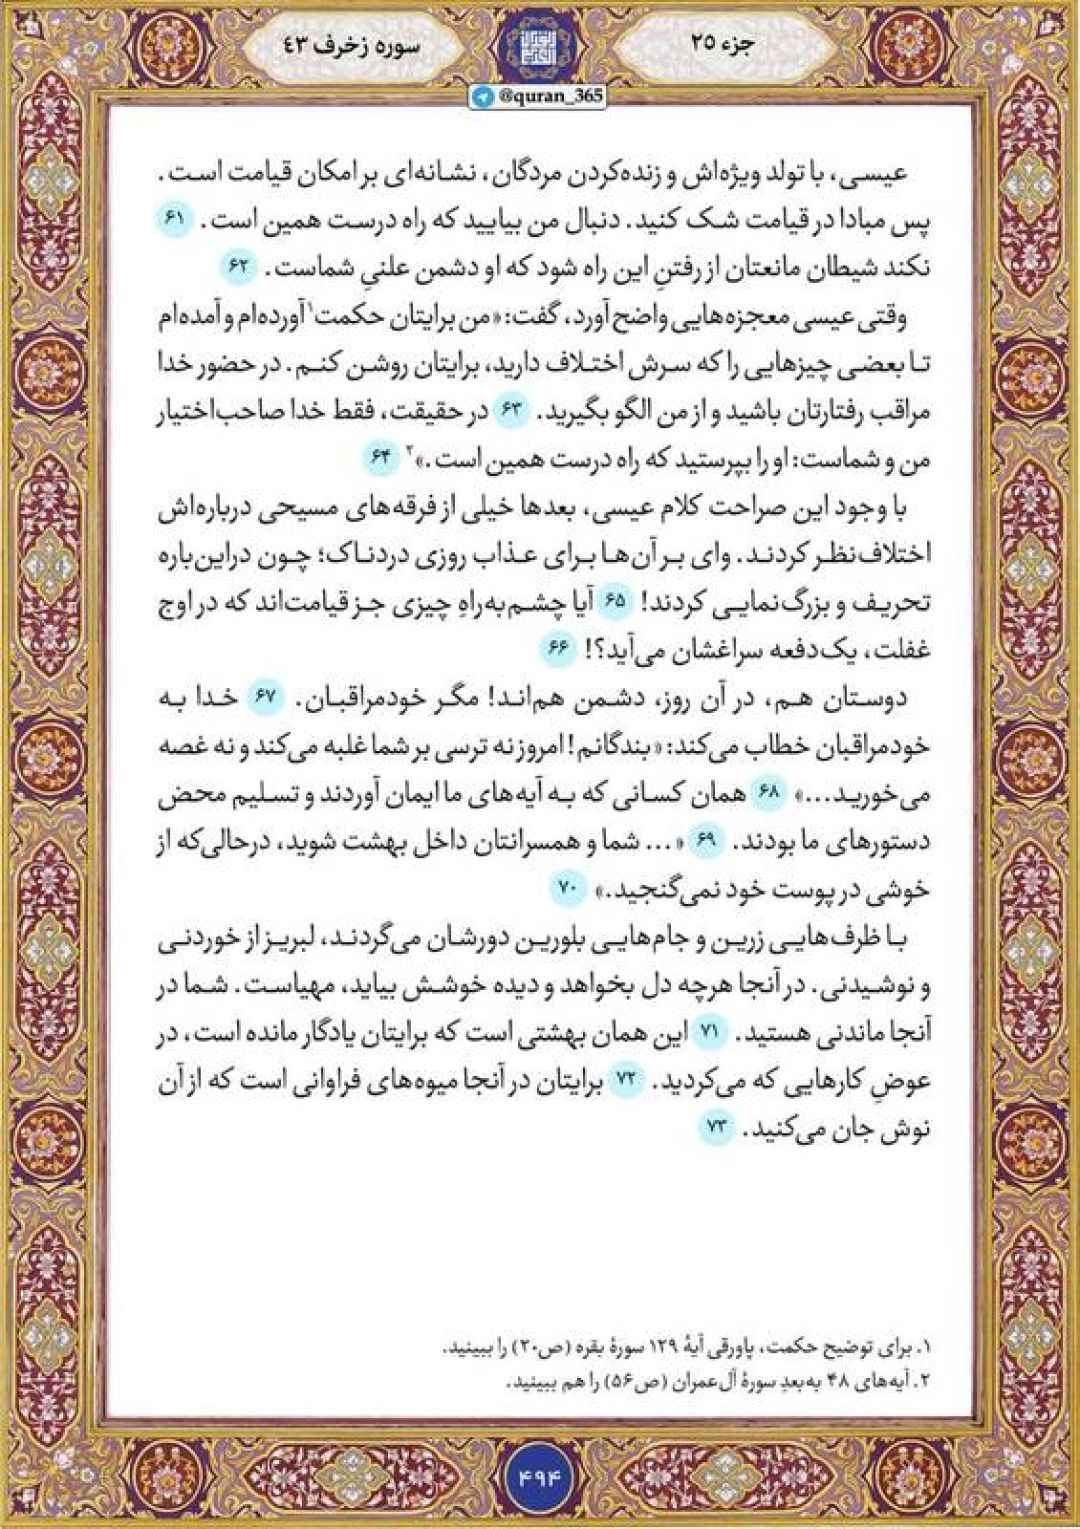 جزء ۲۵
سوره زخرف ۴۳
@quran_365
عیسی، با تولد ویژه‌اش و زنده‌کردن مردگان، نشانه‌ای بر امکان قیامت است.
پس مبادا در قیامت شک کنید. دنبال من بیایید که راه درست همین است. ۶۱
نکند شیطان مانعتان از رفتنِ این راه شود که او دشمن علنیِ شماست. ۶۲
وقتی عیسی معجزه‌هایی واضح آورد، گفت: «من برایتان حکمت۱ آورده‌ام و آمده‌ام
تا بعضی چیزهایی را که سرش اختلاف دارید، برایتان روشن کنم. در حضور خدا
مراقب رفتارتان باشید و از من الگو بگیرید. ۶۳ در حقیقت، فقط خدا صاحب‌اختیار
من و شماست: او را بپرستید که راه درست همین است.»۲ ۶۴
با وجود این صراحت کلام عیسی، بعدها خیلی از فرقه‌های مسیحی درباره‌اش
اختلاف‌نظر کردند. وای بر آن‌ها برای عذاب روزی دردناک؛ چون دراین‌باره
تحریف و بزرگ‌نمایی کردند! ۶۵ آیا چشم‌به‌راهِ چیزی جز قیامت‌اند که در اوج
غفلت، یک‌دفعه سراغشان می‌آید؟! ۶۶
دوستان هم، در آن روز، دشمن هم‌اند! مگر خودمراقبان. ۶۷ خدا به
خودمراقبان خطاب می‌کند: «بندگانم! امروز نه ترسی بر شما غلبه می‌کند و نه غصه
می‌خورید...» ۶۸ همان کسانی که به آیه‌های ما ایمان آوردند و تسلیم محض
دستورهای ما بودند. ۶۹ «... شما و همسرانتان داخل بهشت شوید، درحالی‌که از
خوشی در پوست خود نمی‌گنجید.» ۷۰
با ظرف‌هایی زرین و جام‌هایی بلورین دورشان می‌گردند، لبریز از خوردنی
و نوشیدنی. در آنجا هرچه دل بخواهد و دیده خوشش بیاید، مهیاست. شما در
آنجا ماندنی هستید. ۷۱ این همان بهشتی است که برایتان یادگار مانده است، در
عوضِ کارهایی که می‌کردید. ۷۲ برایتان در آنجا میوه‌های فراوانی است که از آن
نوش جان می‌کنید. ۷۳
۱. برای توضیح حکمت، پاورقی آیهٔ ۱۲۹ سورهٔ بقره (ص۲۰) را ببینید.
۲. آیه‌های ۴۸ به‌بعدِ سورهٔ آل‌عمران (ص۵۶) را هم ببینید.
۴۹۴